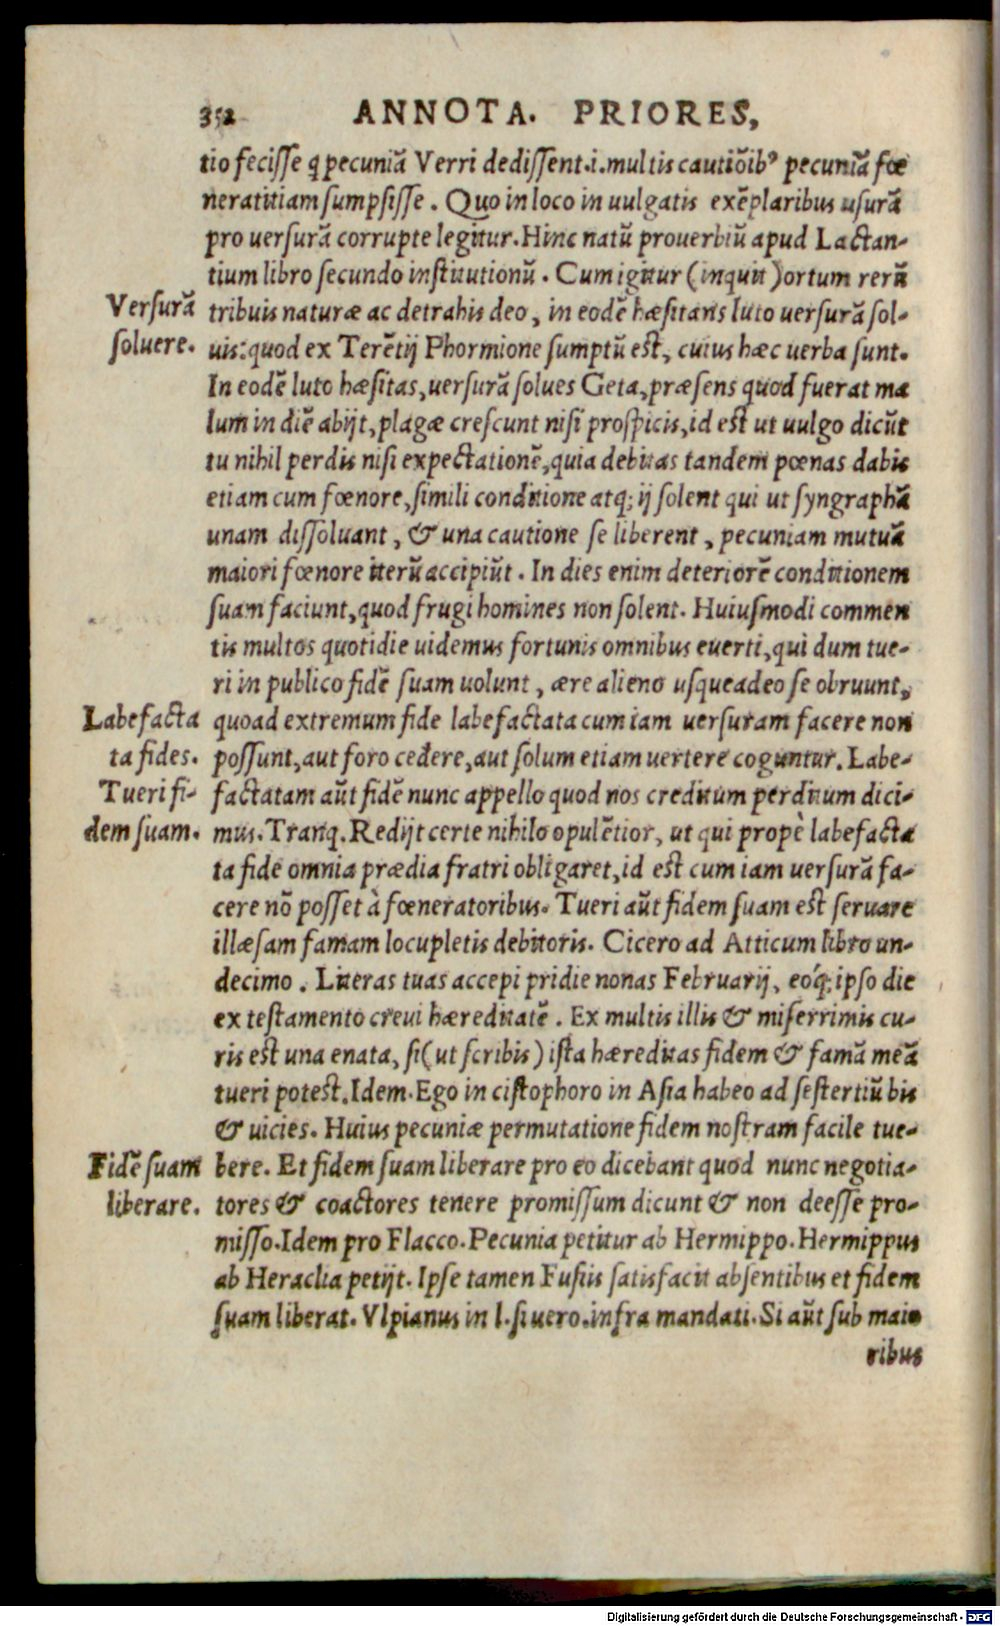 352 ANNOTA. PRIORES,
tio fecisse q̃ pecuniã Verri dedissent.i.multis cautiõib⁹ pecuniã fœ
neratitiam sumpsisse. Quo in loco in uulgatis exẽplaribus usurã
pro uersurã corrupte legitur. Hinc natũ prouerbiũ apud Lactan-
tium libro secundo institutionũ. Cum igitur (inquit) ortum rerũ
Versurã tribuis naturæ ac detrahis deo, in eodẽ hæsitans luto uersurã sol-
soluere. uis: quod ex Terẽtij Phormione sumptũ est, cuius hæc uerba sunt.
In eodẽ luto hæsitas, uersurã solues Geta, præsens quod fuerat ma
lum in diẽ abijt, plagæ crescunt nisi prospicis, id est ut uulgo dicũt
tu nihil perdis nisi expectationẽ, quia debitas tandem pœnas dabis
etiam cum fœnore, simili conditione atq; ij solent qui ut syngraphã
unam dissoluant, & una cautione se liberent, pecuniam mutuã
maiori fœnore iterũ accipiũt. In dies enim deteriorẽ conditionem
suam faciunt, quod frugi homines non solent. Huiusmodi commen
tis multos quotidie uidemus fortunis omnibus euerti, qui dum tue-
ri in publico fidẽ suam uolunt, ære alieno usqueadeo se obruunt,
Labefacta quoad extremum fide labefactata cum iam uersuram facere non
ta fides. possunt, aut foro cedere, aut solum etiam uertere coguntur. Labe-
Tueri fi- factatam aũt fidẽ nunc appello quod nos creditum perditum dici-
dem suam. mus. Tranq. Redijt certe nihilo opulẽtior, ut qui propè labefacta
ta fide omnia prædia fratri obligaret, id est cum iam uersurã fa-
cere nõ posset à fœneratoribus. Tueri aũt fidem suam est seruare
illæsam famam locupletis debitoris. Cicero ad Atticum libro un-
decimo. Literas tuas accepi pridie nonas Februarij, eóq; ipso die
ex testamento creui hæreditatẽ. Ex multis illis & miserrimis cu-
ris est una enata, si (ut scribis) ista hæreditas fidem & famã meã
tueri potest. Idem. Ego in cistophoro in Asia habeo ad sestertiũ bis
& uicies. Huius pecuniæ permutatione fidem nostram facile tue-
Fidẽ suam bere. Et fidem suam liberare pro eo dicebant quod nunc negotia-
liberare. tores & coactores tenere promissum dicunt & non deesse pro-
misso. Idem pro Flacco. Pecunia petitur ab Hermippo. Hermippus
ab Heraclia petijt. Ipse tamen Fufiis satisfacit absentibus et fidem
suam liberat. Vlpianus in l. si uero. infra mandati. Si aũt sub maio
ribus
Digitalisierung gefördert durch die Deutsche Forschungsgemeinschaft - DFG